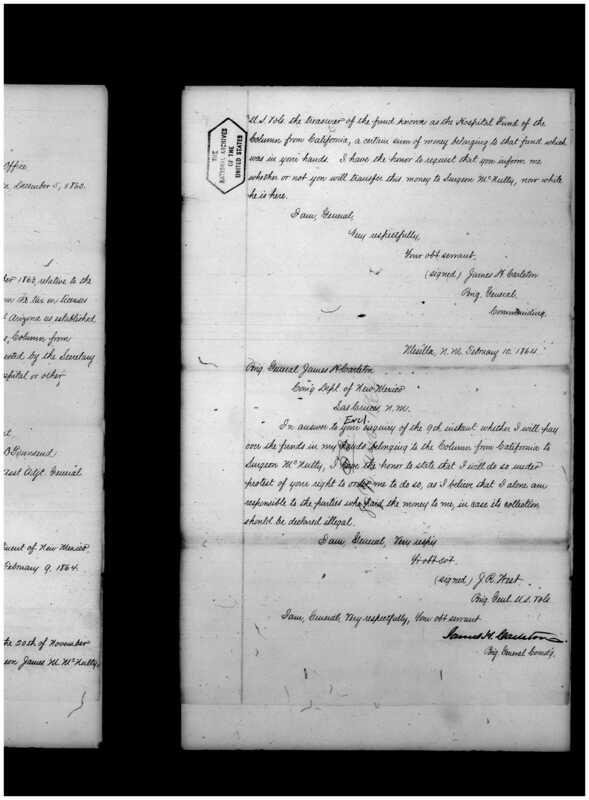 Office
December 5, 1863.
1863, relative to the
the tax on licenses
Arizona as established
Column from
by the Secretary
Hospital or other
Townsend
Asst Adjt. General
Department of New Mexico,
February 9, 1864.
the 20th of November
Surgeon James M. McNulty,
THE
NATIONAL ARCHIVES
OF THE
UNITED STATES
U.S. Vols. the treasurer of the fund known as the Hospital Fund of the
Column from California, a certain sum of money belonging to that fund which
was in your hands. I have the honor to request that you inform me
whether or not you will transfer this money to Surgeon McNulty, now while
he is here.
I am, General,
Very respectfully,
Your obt servant.
(signed) James H. Carleton
Brig. General.
Commanding.
Mesilla, N.M. February 10, 1864.
Brig. General James H. Carleton
Com'g Dept. of New Mexico
Las Cruces, N.M.
Encl.
In answer to your inquiry of the 9th instant whether I will pay
over the funds in my hands belonging to the Column from California to
Surgeon McNulty, I have the honor to state that I will do so under
protest of your right to order me to do so, as I believe that I alone am
responsible to the parties who paid the money to me, in case its collection
should be declared illegal.
I am, General, Very respy
Yr obt svt.
(signed) J. R. West
Brig. Genl. U.S. Vols.
I am, General, Very respectfully, Your obt servant
James H. Carleton.
Brig. General Comd'g.